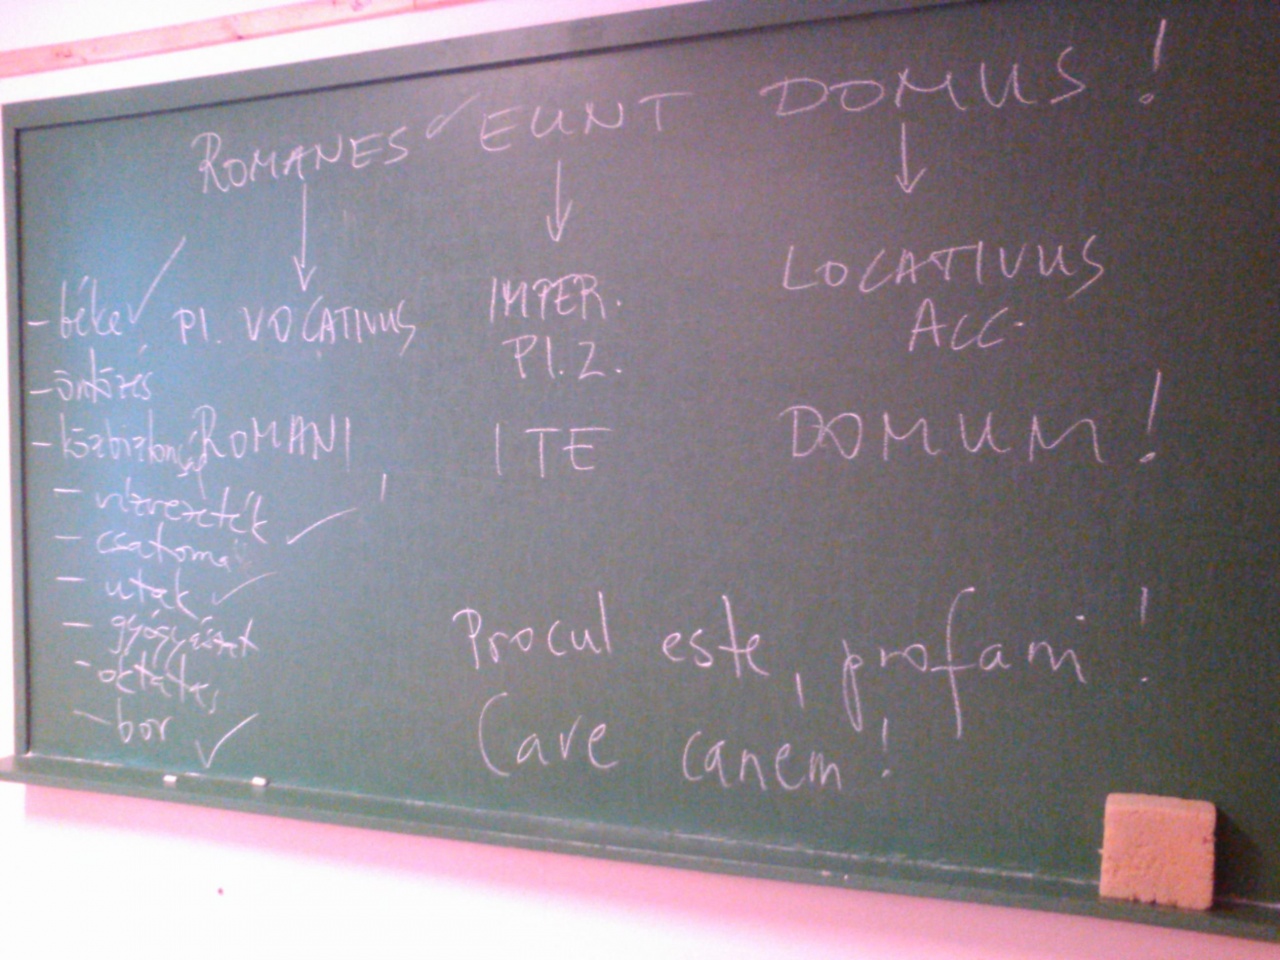 ROMANES EUNT DOMUS!
PL. VOCATIVUS
ROMANI
IMPER.
Pl. 2.
ITE
LOCATIVUS
ACC.
DOMUM!
- béke
- öntözés
- közbiztonság
- vízvezeték
- csatorna
- utak
- gyógyászat
- oktatás
- bor
Procul este, profani!
Cave canem!